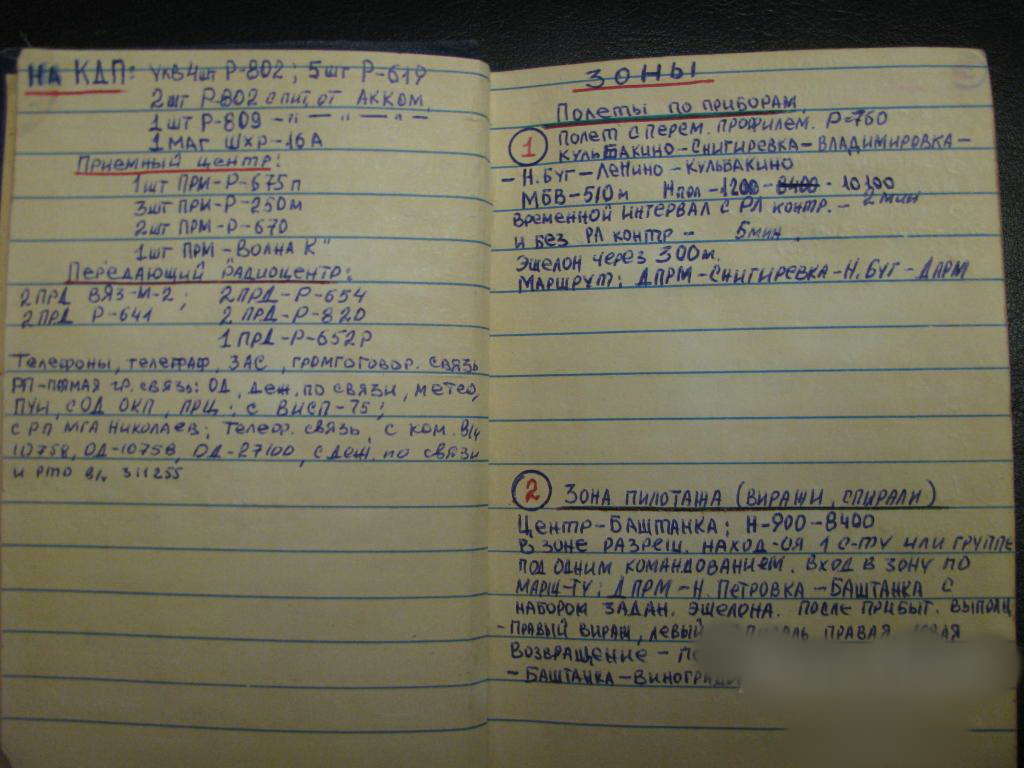 НА КДП: УКВ 4шт Р-802; 5шт Р-619
2шт Р-802 с пит. от АККОМ.
1 шт Р-809 -"- -"- -"-
1 МАГ ШХР-16А
Приемный центр:
1шт ПРМ-Р-675п
3шт ПРМ-Р-250м
2шт ПРМ-Р-670
1шт ПРМ-"Волна К"
Передающий радиоцентр:
2ПРД ВЯЗ-М-2; 2ПРД-Р-654
2ПРД Р-641 2 ПРД-Р-820
1 ПРД-Р-652Р
Телефоны, телеграф, ЗАС, громгоговор. связь
РП-прямая гр. связь: ОД, деж. по связи, метео,
ПУИ, СОД ОКП, ПРЦ; с ВИСП-75;
с РП МГА Николаев; Телеф. связь с ком. в/ч
10758, ОД-10758, ОД-27100, с деж. по связи
и РТО в/ч 311255
ЗОНЫ
Полеты по приборам.
1 Полет с перем. профилем. Р=760
Кульбакино-Снигиревка-Владимировка-
-Н.Буг-Ленино-Кульбакино
МБВ-510м Нпол-1200-8400-10100
Временной интервал с РЛ контр. - 2мин
и без РЛ контр - 5мин.
Эшелон через 300м.
Маршрут: ДПРМ-Снигиревка-Н.Буг-ДПРМ
2 Зона пилотажа (виражи, спирали)
Центр-Баштанка; Н-900-8400
В зоне разреш. наход-ся 1 с-ту или группе
под одним командованием. Вход в зону по
марш-ту: ДПРМ-Н.Петровка-Баштанка с
набором задан. эшелона. После прибыт. выполн
-Правый вираж, левый правая
Возвращение -
-Баштанка-